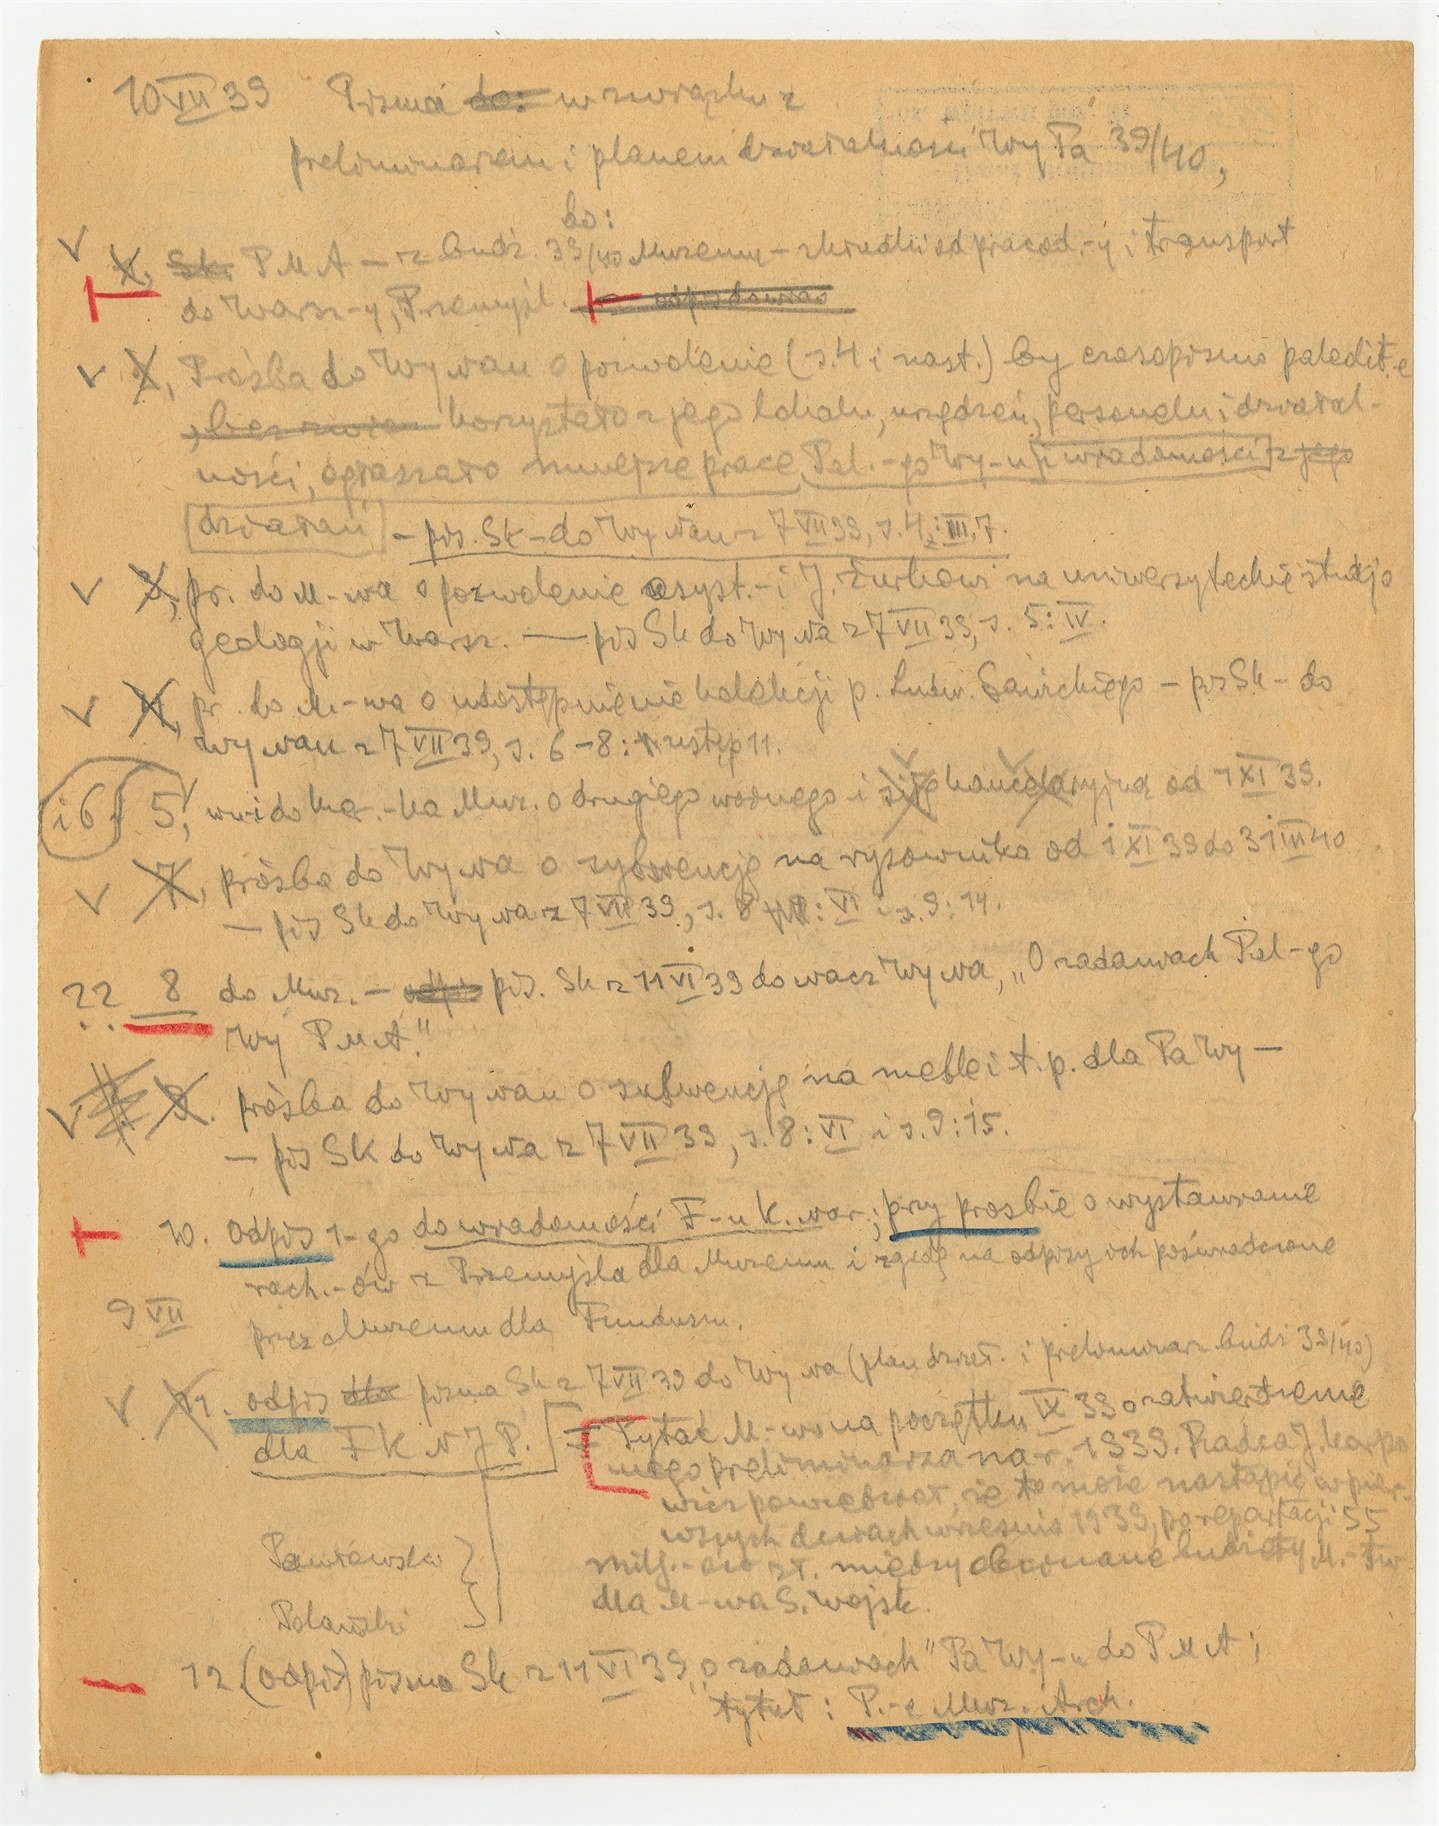 10 VII 39 Pisma do: w związku z
preliminarzem i planem działalności Wy Pa 39/40,
do:
1, Sk. P M A – z budż. 39/40 Muzeum – składki od pracod.-y i transport
do Warsz-y, Przemyśl. – odpis dowao
2, Prośba do Wy wau o pozwolenie (s. 4 i nast.) by czasopismo paleolit.-e
, bez zwien korzystało z jego lokalu, urządzeń, personelu i działal-
ności, ogłaszało mniejsze prace Pal.-go Wy-u i wiadomości z jego
działań – pis. Sk – do Wy wau z 7 VII 39, s. 4, : III, 7.
3, pr. do M-wa o pozwolenie asyst.-i J. Żurkowi na uniwersyteckie studja
geologji w Warsz. — pis Sk do Wy wa z 7 VII 39, s. 5 : IV.
4, pr. do M.-wa o udostępnienie kolekcji p. Ludw. Sawickiego – pis Sk – do
Wy wau z 7 VII 39, s. 6 – 8 : ustęp 11.
i 6, 5, do Muz. o drugiego woźnego i siłę kancelaryjną od 1 XI 39.
7, prośba do Wy wa o subwencję na rysownika od 1 XI 39 do 31 III 40
– pis Sk do Wy wa z 7 VII 39, s. 8 : VI i s. 9 : 14.
22 8 do Muz. – odpis pis. Sk z 11 VI 39 do Wy wa, „O zadaniach Pal-go
Wy P M A."
9. prośba do Wy wau o subwencję na meble i t. p. dla Pa Wy –
– pis Sk do Wy wa z 7 VII 39, s. 8 : VI i s. 9 : 15.
10. odpis 1-go do wiadomości F-u K. , przy prośbie o wystawianie
rach.-ów z Przemyśla dla Muzeum i zgodę na odpisy ich poświadczone
9 VII przez Muzeum dla Funduszu.
11. odpis dla pisma Sk z 7 VII 39 do Wy wa (plan dział. i preliminarz budż 39/40)
dla F K N J P. Pytać M.-wo na początku IX 39 o zatwierdzenie
mego preliminarza na r. 1939. Radca J. Karpo
wicz powiedział, że to może nastąpić w pier-
wszych dniach września 1939, po repartacji 55
milj.-ów zł. między obcinane budżety M.-tw
dla M-wa S. wojsk.
Pawłowski
Polański
12 (odpis) pisma Sk z 11 VI 39, „o zadaniach" Pa Wy-u do P M A ;
tytuł : P.-e Muz. Arch.